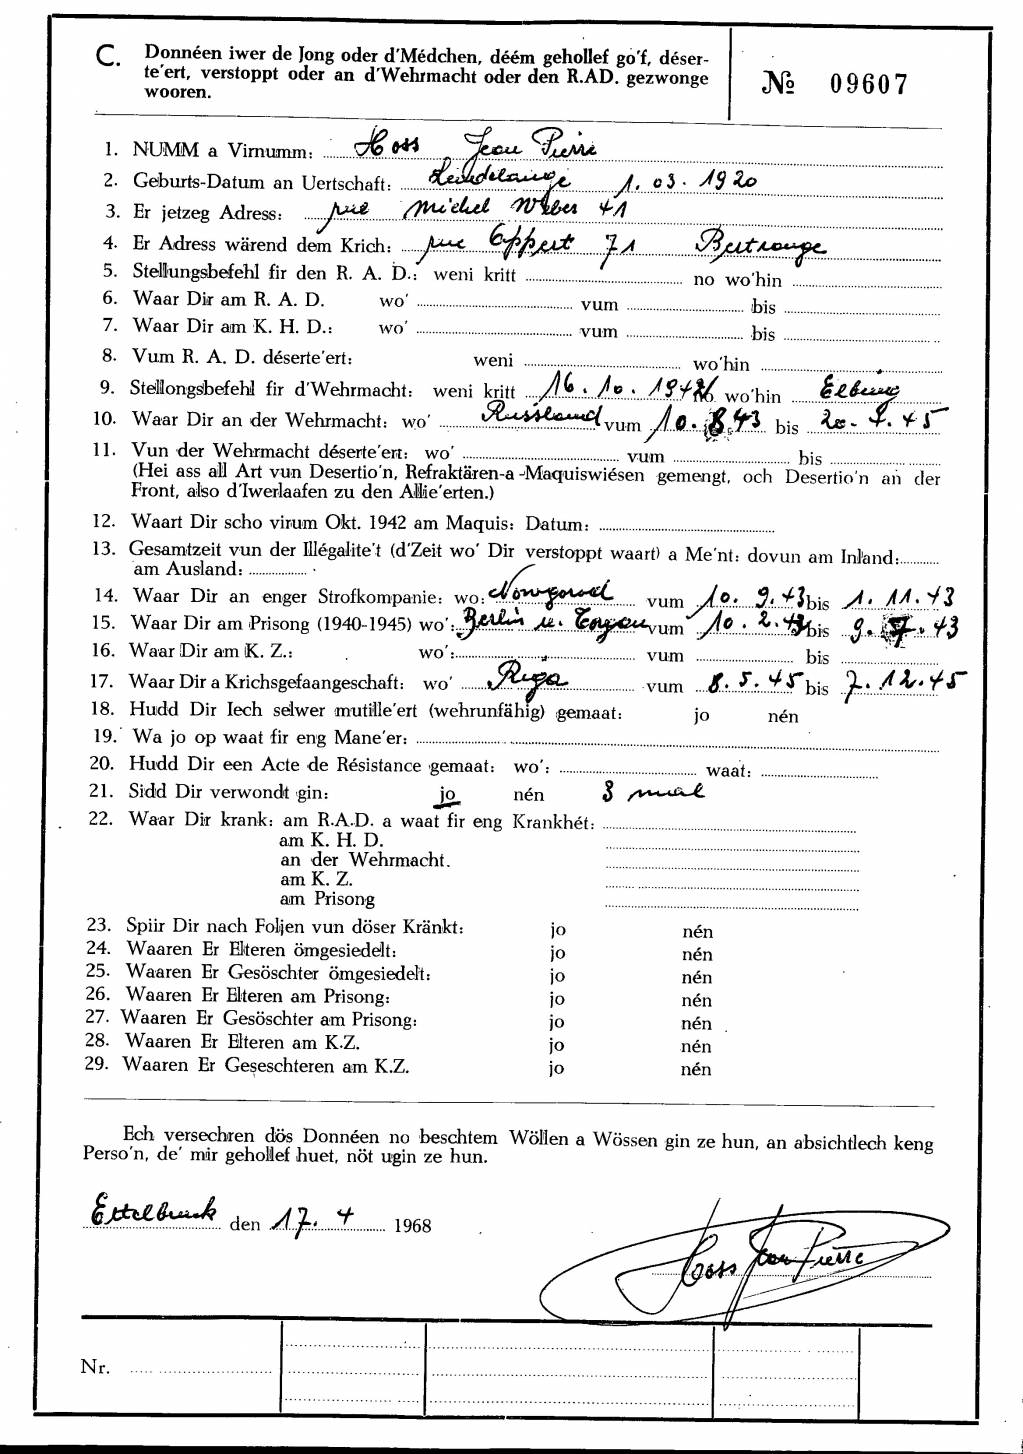 C. Donnéen iwer de Jong oder d'Médchen, déém gehollef go'f, déser-
te'ert, verstoppt oder an d'Wehrmacht oder den R.AD. gezwonge
wooren.
№ 09607
1. NUMM a Virnumm: Hoss Jean Pierre
2. Geburts-Datum an Uertschaft: 1. 03. 1920
3. Er jetzeg Adress: rue Michel Weber 41
4. Er Adress wärend dem Krich: rue Oppert 71 Bertrange
5. Stellungsbefehl fir den R. A. D.: weni kritt no wo'hin
6. Waar Dir am R. A. D. wo' vum bis
7. Waar Dir am K. H. D.: wo' vum bis
8. Vum R. A. D. déserte'ert: weni wo'hin
9. Stellongsbefehl fir d'Wehrmacht: weni kritt 16. 10. no wo'hin Elbing
10. Waar Dir an der Wehrmacht: wo' Russland vum 10. 8 43 bis 45
11. Vun der Wehrmacht déserte'ert: wo' vum bis
(Hei ass all Art vun Desertio'n, Refraktären-a -Maquiswiésen gemengt, och Desertio'n an der
Front, also d'Iwerlaafen zu den Allie'erten.)
12. Waart Dir scho virum Okt. 1942 am Maquis: Datum:
13. Gesamtzeit vun der Illégalite't (d'Zeit wo' Dir verstoppt waart) a Me'nt: dovun am Inland:
am Ausland:
14. Waar Dir an enger Strofkompanie: wo: Nowgorod vum 10. 9. 43 bis 1. 11. 43
15. Waar Dir am Prisong (1940-1945) wo': Berlin u. Torgau vum 10. 2. 43 bis 9. 7. 43
16. Waar Dir am K. Z.: wo': vum bis
17. Waar Dir a Krichsgefaangeschaft: wo' Riga vum 8. 5. 45 bis 7. 12. 45
18. Hudd Dir Iech selwer mutille'ert (wehrunfähig) gemaat: jo nén
19. Wa jo op waat fir eng Mane'er:
20. Hudd Dir een Acte de Résistance gemaat: wo': waat:
21. Sidd Dir verwondt gin: jo nén 3 mal
22. Waar Dir krank: am R.A.D. a waat fir eng Krankhét:
am K. H. D.
an der Wehrmacht.
am K. Z.
am Prisong
23. Spiir Dir nach Foljen vun döser Kränkt: jo nén
24. Waaren Er Elteren ömgesiedelt: jo nén
25. Waaren Er Gesöschter ömgesiedelt: jo nén
26. Waaren Er Elteren am Prisong: jo nén
27. Waaren Er Gesöschter am Prisong: jo nén
28. Waaren Er Elteren am K.Z. jo nén
29. Waaren Er Geseschteren am K.Z. jo nén
Ech versechren dös Donnéen no beschtem Wöllen a Wössen gin ze hun, an absichtlech keng
Perso'n, de' mir gehollef huet, nöt ugin ze hun.
Ettelbruck den 17. 4 1968
Hoss Jean Pierre
Nr.